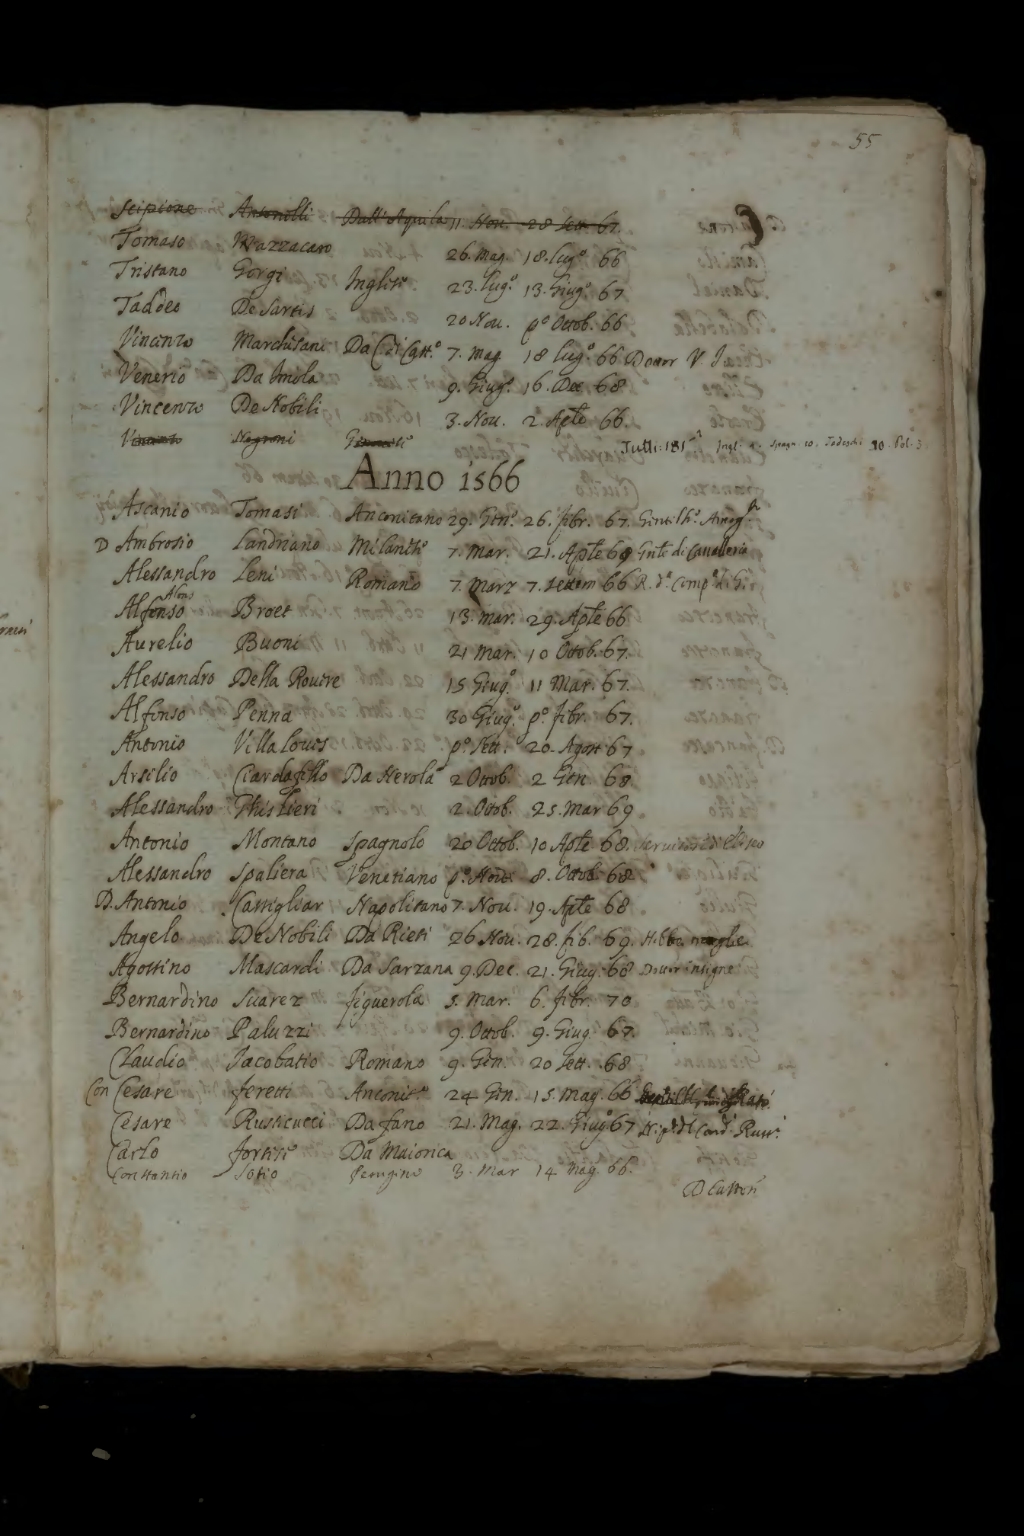 55
Scipione Antonelli Dall'Aquila 11. Nou. 28 Sett 67.
Tomaso Mazzacaro 26. Mag. 18. Lugº 66
Tristano Gorgi Inglese. 23. Lugº. 13. Giugº. 67
Taddeo De Sartis 20 Nou. pº Ottob. 66
Vincenzo Marchisani Da 7. Mag 18 Lugº. 66 Dottor
Venerio Da Imola 9. Giugº. 16. Dec 68
Vincenzo De Nobili 3. Nou. 2. Aple 66.
Vincenzo Negroni
Tutti. 181 Ingl. Spagn. 10. Todeschi 10. Pol. 3
Anno 1566
Ascanio Tomasi Anconitano 29. Genº. 26. Febr. 67. Gentilhº.
D Ambrosio Landriano Milanese 7. Mar. 21. Aple 69 Gnte di Cavalleria
Alessandro Leni Romano 7 Marz 7. Settem 66 R. dª. Compª. di G.
Alfonso Broet 13. Mar. 29. Aple 66
Aurelio Buoni 21 Mar. 10 Ottob. 67.
Alessandro Della Rouere 15 Giugº 11 Mar. 67.
Alfonso Penna 30 Giugº. pº. Febr. 67.
Antonio Villalouos pº. Sett. 20. Agost 67
Arsilio Da Nerola 2 Ottob. 2 Gen 68
Alessandro Ghislieri 2. Ottob. 25. Mar 69
Antonio Montano Spagnolo 20 Ottob. 10 Aple 68.
Alessandro Spaliera Venetiano pº. Nou. 8. Ottob. 68
D. Antonio Napolitano 7. Nou. 19. Aple 68
Angelo De Nobili Da Rieti 26 Nou. 28. Feb. 69. Hebbe moglie
Agostino Mascardi Da Sarzana 9. Dec. 21. Giug. 68 Dottor insigne
Bernardino Suarez Figuerola 5. Mar. 6. Febr. 70
Bernardino Paluzzi 9. Ottob. 9. Giug 67.
Claudio Jacobatio Romano 9. Gen. 20 Sett. 68
Con Cesare Feretti 24 Gen. 15. Mag. 66
Cesare Rusticucci Da Fano 21. Mag. 22. Giugº 67 Card.
Carlo Da Maiorica
Constantio Sotio Perugino 3. Mar 14 Mag. 66.
D